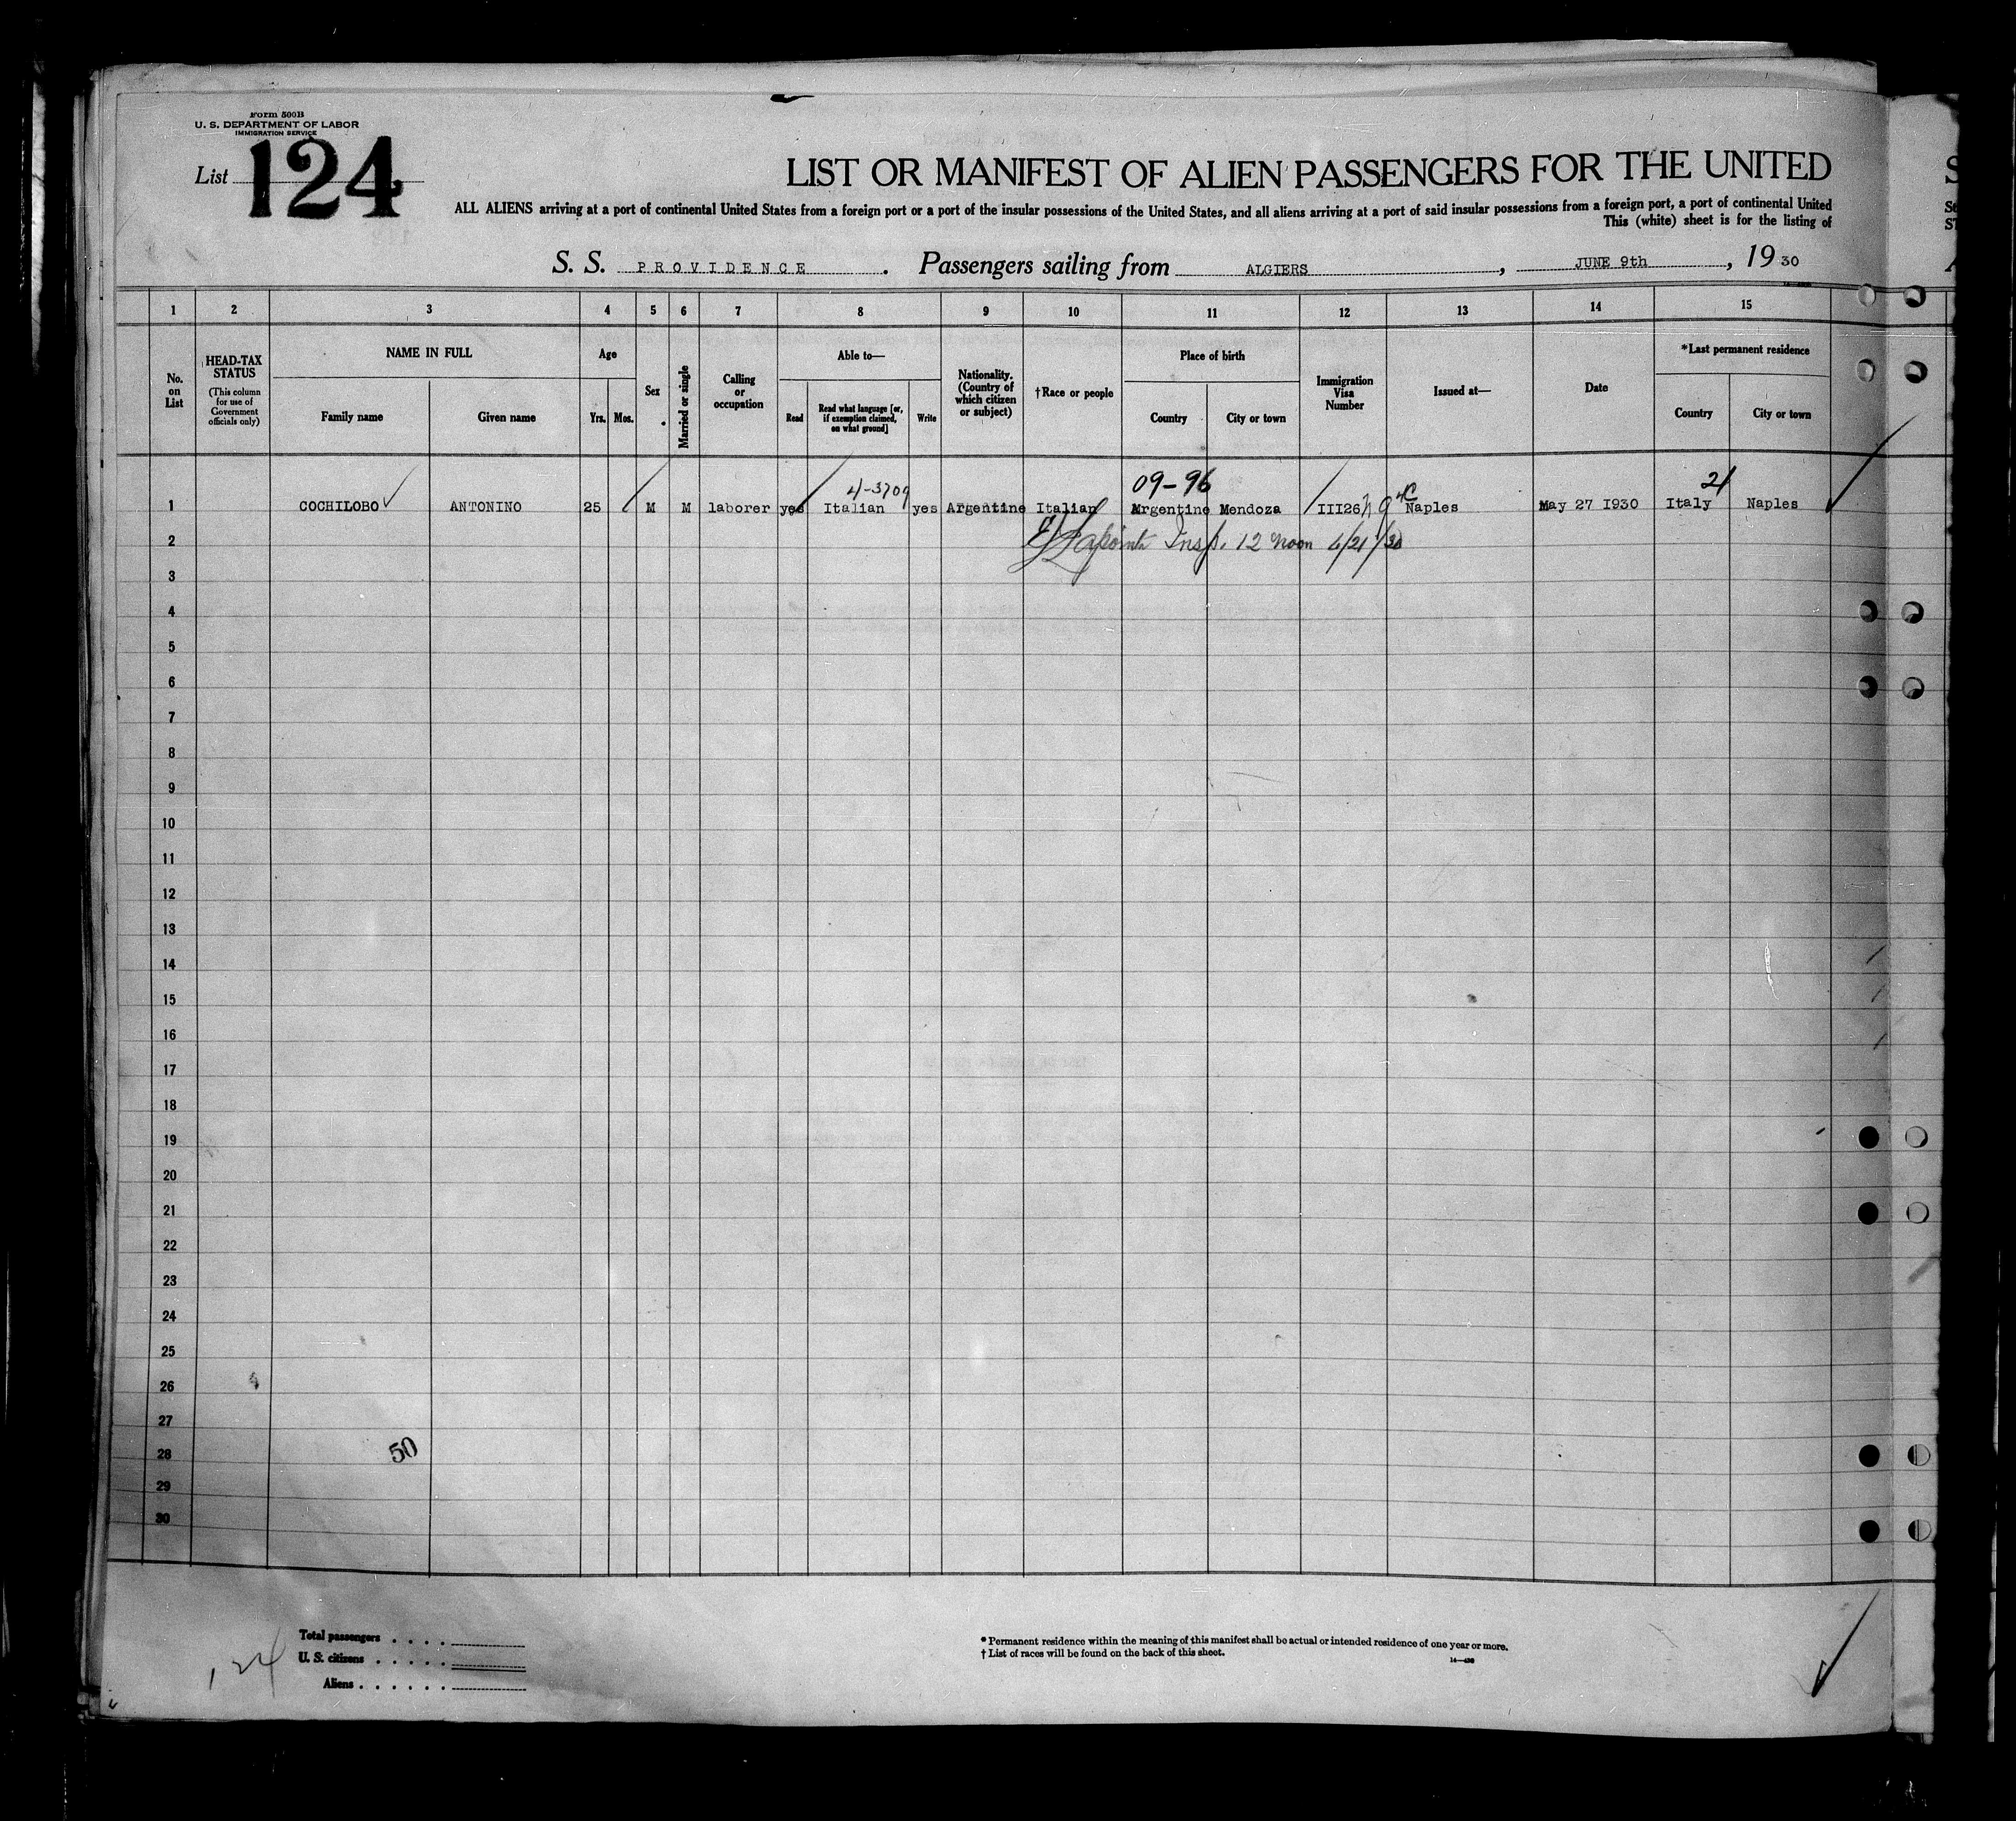 Form 500B
U. S. DEPARTMENT OF LABOR
IMMIGRATION SERVICE
List 124
LIST OR MANIFEST OF ALIEN PASSENGERS FOR THE UNITED
ALL ALIENS arriving at a port of continental United States from a foreign port or a port of the insular possessions of the United States, and all aliens arriving at a port of said insular possessions from a foreign port, a port of continental United
This (white) sheet is for the listing of
S. S. PROVIDENCE . Passengers sailing from ALGIERS , JUNE 9th , 19 30
1 2 3 4 5 6 7 8 9 10 11 12 13 14 15
No. on List
HEAD-TAX STATUS
(This column for use of Government officials only)
NAME IN FULL
Family name
Given name
Age
Yrs.
Mos.
Sex
Married or single
Calling or occupation
Able to—
Read
Read what language [or, if exemption claimed, on what ground]
Write
Nationality. (Country of which citizen or subject)
†Race or people
Place of birth
Country
City or town
Immigration Visa Number
Issued at—
Date
*Last permanent residence
Country
City or town
4-3709 09-96 21
1 COCHILOBO ANTONINO 25 M M laborer yes Italian yes Argentine Italian Argentine Mendoza III26 Naples May 27 1930 Italy Naples
2 Lapointe Insp. 12 noon 6/21/30
3
4
5
6
7
8
9
10
11
12
13
14
15
16
17
18
19
20
21
22
23
24
25
26
27
28 50
29
30
Total passengers
U. S. citizens
Aliens
124
* Permanent residence within the meaning of this manifest shall be actual or intended residence of one year or more.
† List of races will be found on the back of this sheet.